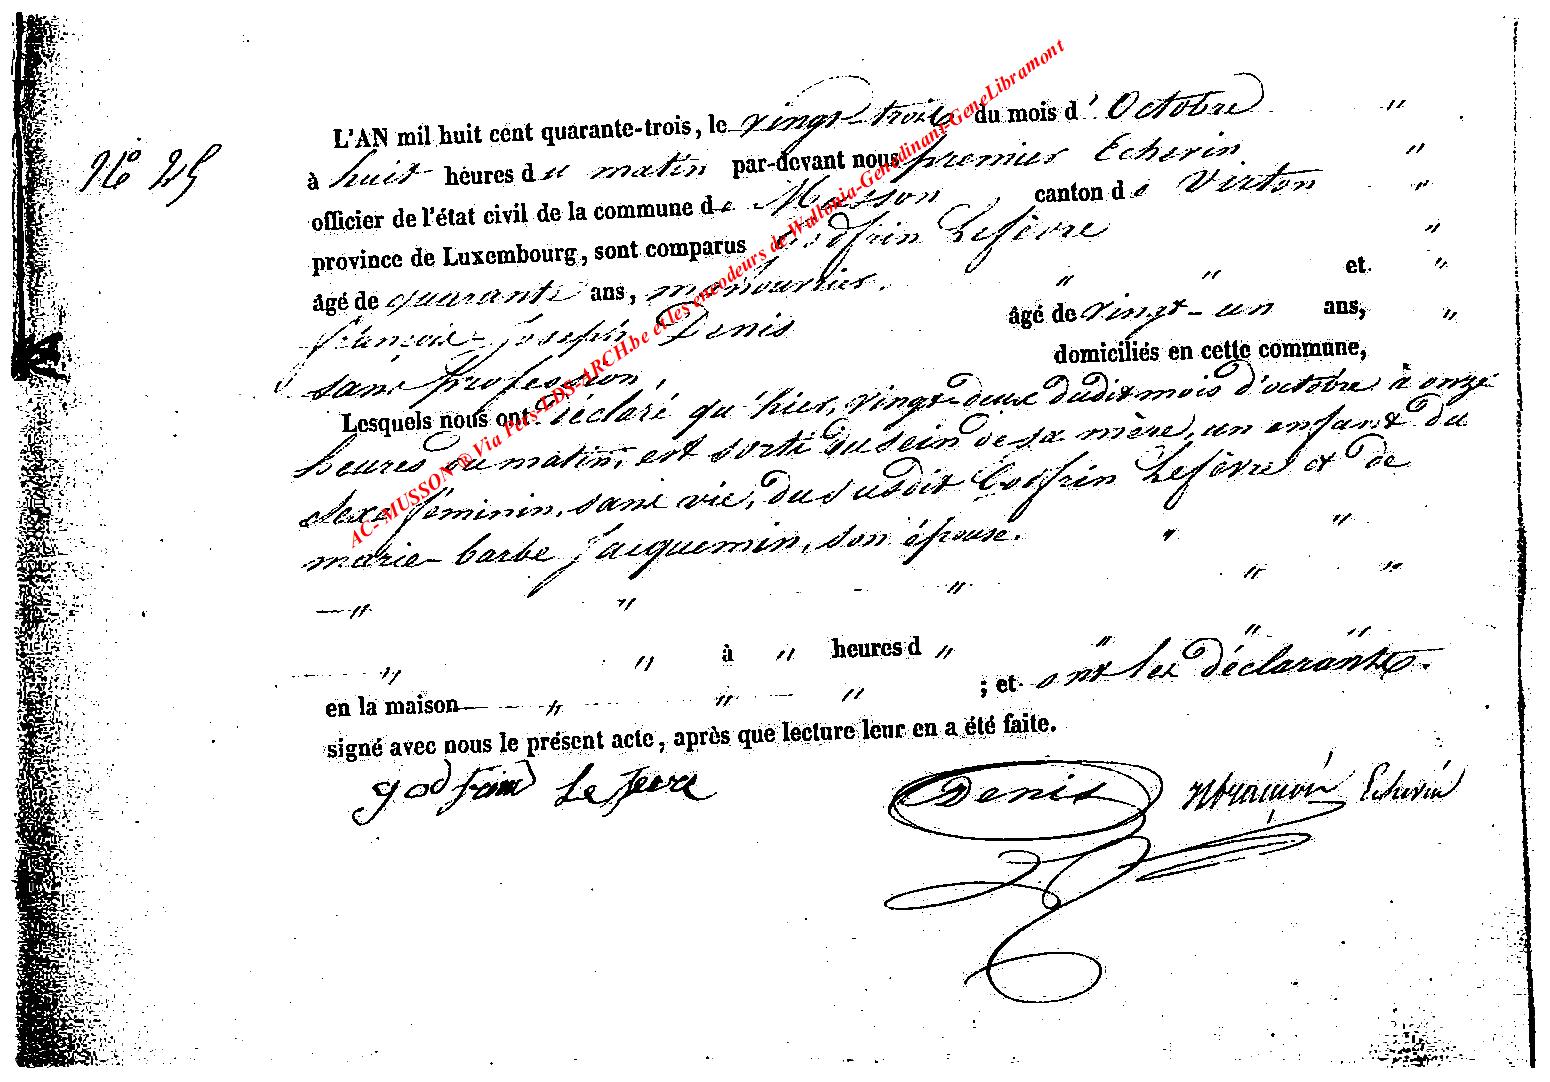 N° 25
L'AN mil huit cent quarante-trois, le vingt-trois du mois d' Octobre "
à huit heures du matin par-devant nous premier Echevin "
officier de l'état civil de la commune de Musson canton de Virton "
province de Luxembourg, sont comparus Godfrin Lefèvre "
âgé de quarante ans, manouvrier. " " et "
françois-Joseph Denis âgé de vingt-un ans, "
sans profession, domiciliés en cette commune,
Lesquels nous ont déclaré qu'hier, vingt-deux dudit mois d'octobre à onze
heures du matin, est sorti du sein de sa mère, un enfant du
sexe féminin, sans vie, du susdit Godfrin Lefèvre et de
marie-barbe Jacquemin, son épouse. " "
" " " " "
" " à " heures d " " " "
en la maison " " " ; et ont les déclarants
signé avec nous le présent acte, après que lecture leur en a été faite.
godfrin Lefevre Denis Echevin
AC- MUSSON ® Via Pers-LDS-ARCH.be et les encodeurs de Wallonia-Genedinant-GeneLibramont